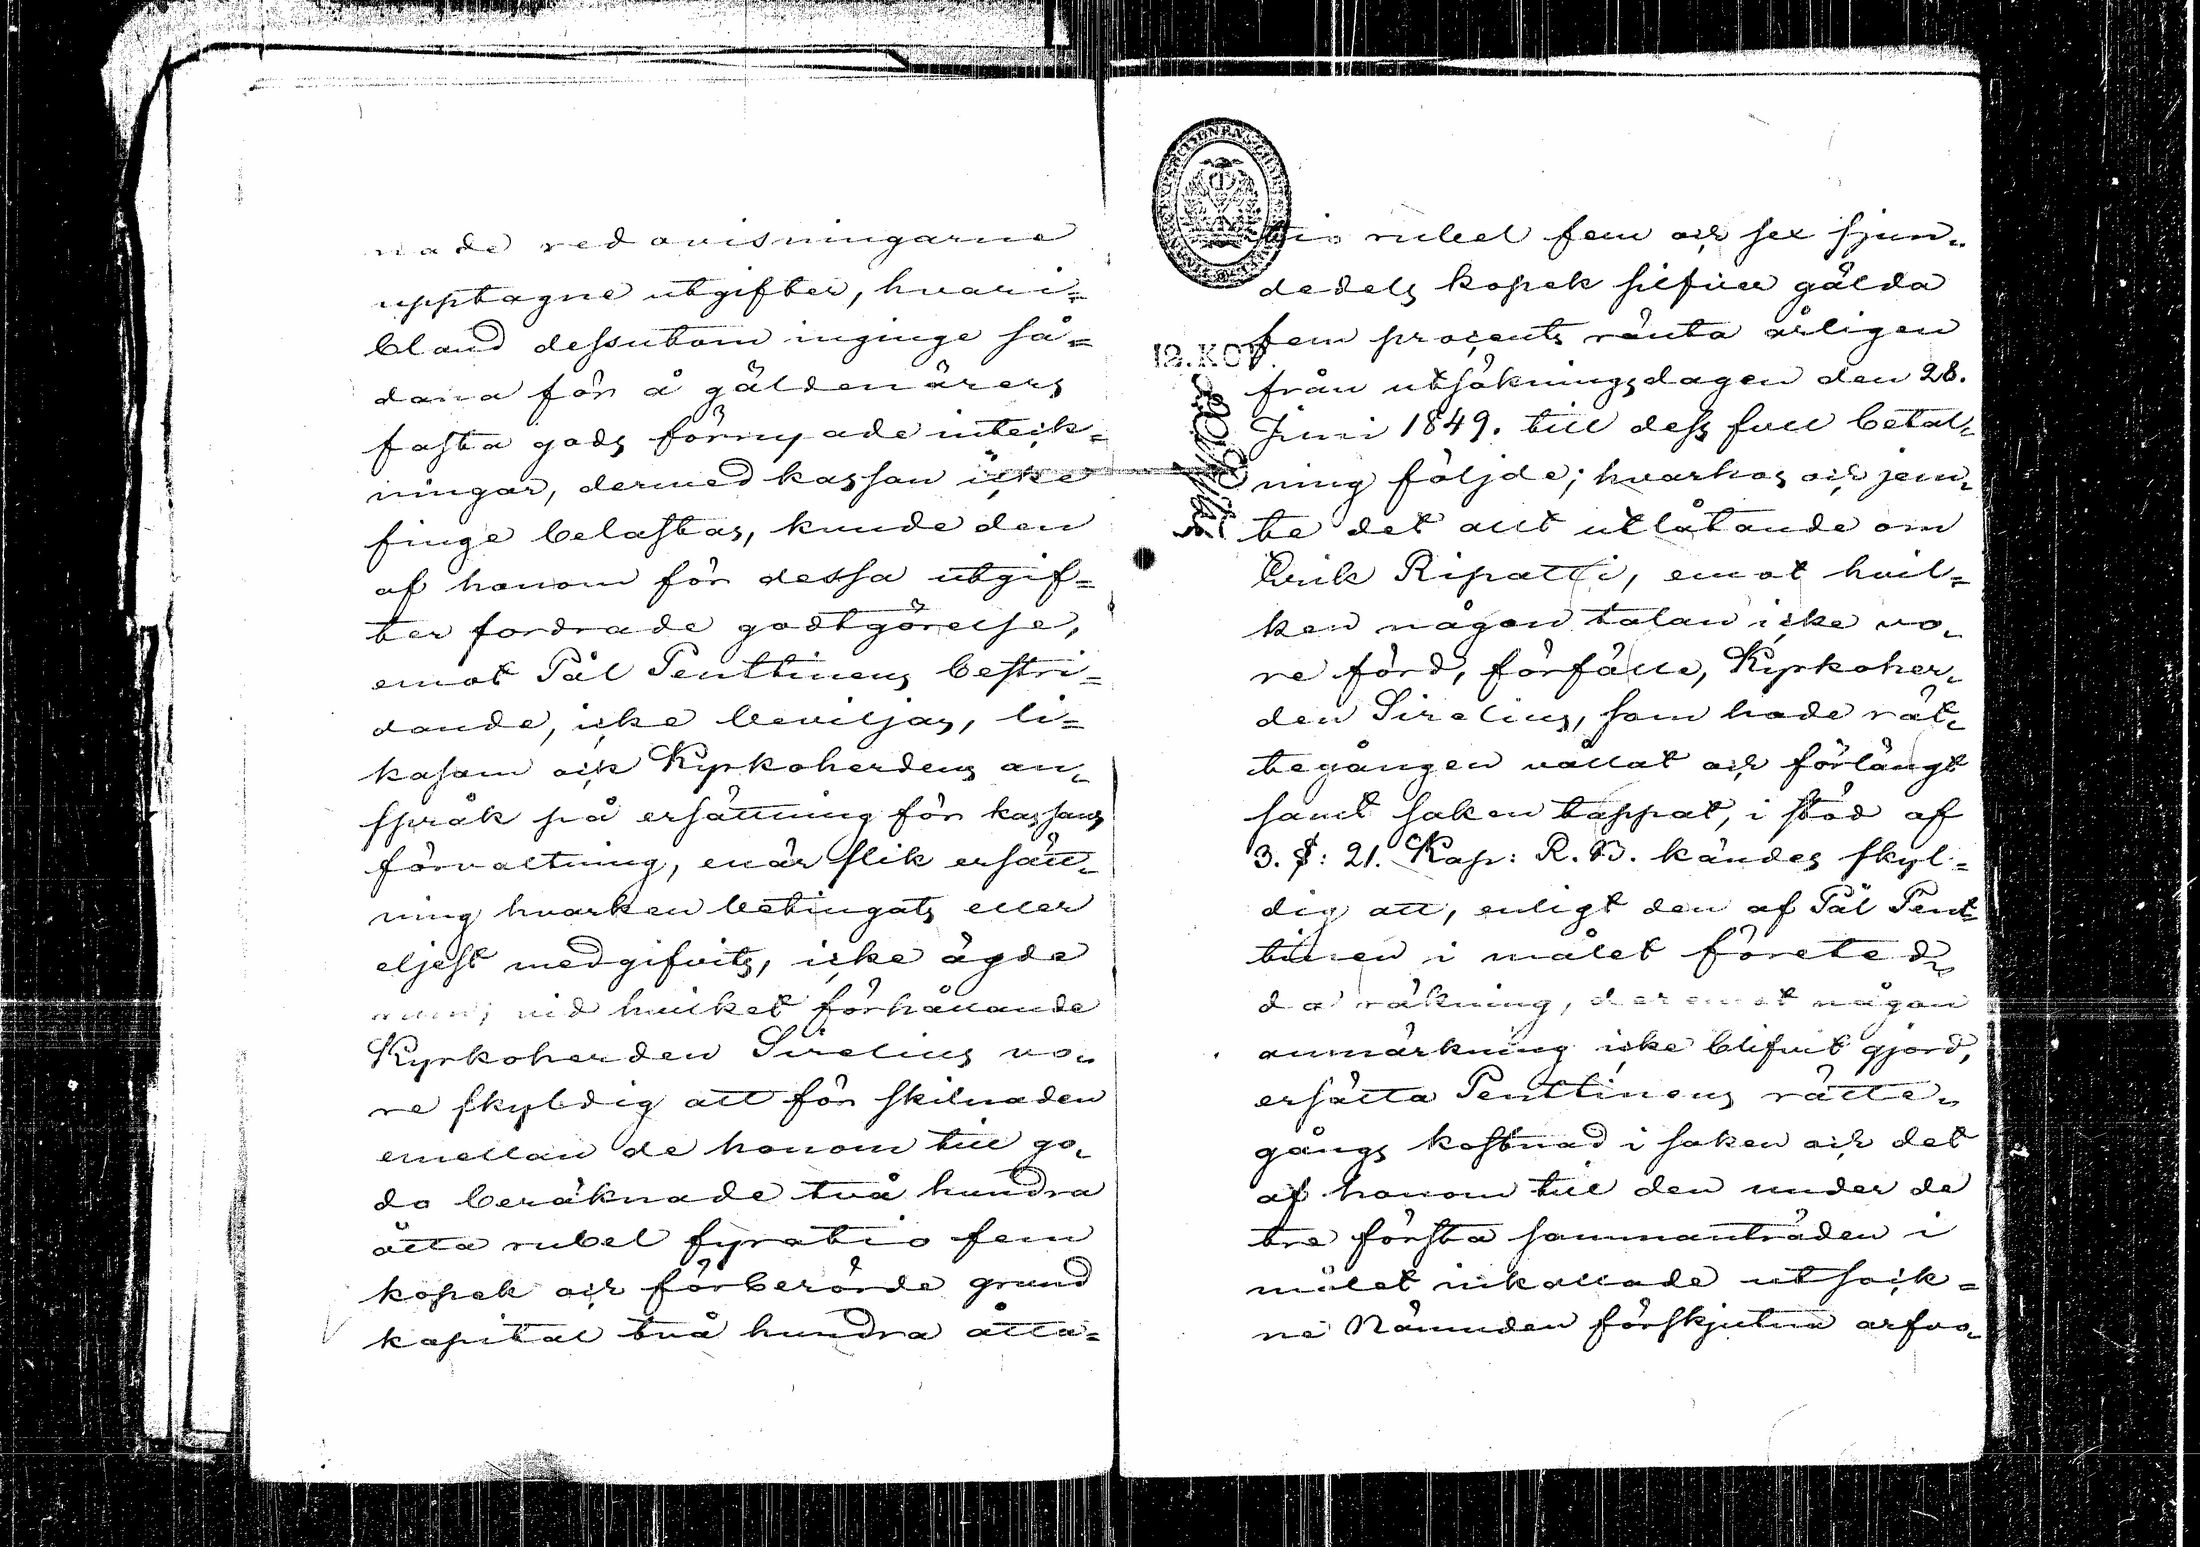 nade redovisningarne
upptagne utgifter, hvari=
bland dessutom inginge så=
dana för å gäldenärers
fasta gods förnyade inteck=
ningar, dermed kassan icke
finge belastas, kunde den
af honom för dessa utgif=
ter fordrade godtgörelse,
emot Pål Penttinens bestri=
dande, icke beviljas, li=
kasom ock Kyrkoherdens an=
språk på ersättning för kassans
förvaltning, enär slik ersätt=
ning hvarken betingats eller
eljest medgifvits, icke ägde
rum; vid hvilket förhållande
Kyrkoherden Sirelius vo=
re skyldig att för skilnaden
emellan de honom till go=
do beräknade två hundra
åtta rubel fyratio fem
kopek och förberörde grund
kapital två hundra åtta=
tio rubel fem och sex sjun=
dedels kopek silfver gälda
fem procents ränta årligen
från utsökningsdagen den 28.
Juni 1849. till dess full betal=
ning följde; hvarhos och jem=
te det allt utlåtande om
Erik Ripatti, emot hvil=
ken någon talan icke vo=
re förd, förfälle, Kyrkoher=
den Sirelius, som hade rät=
tegången vållat och förlängt
samt saken tappat, i stöd af
3. §: 21. Kap: R. B. kändes skyl=
dig att, enligt den af Pål Pent=
tinen i målet företed=
da räkning, deremot någon
anmärkning icke blifvit gjord,
ersätta Penttinens rätte=
gångs kostnad i saken och det
af honom till den under de
tre första sammanträden i
målet inkallade utsock=
ne Nämnden förskjutna arfvo=
12. KOP.